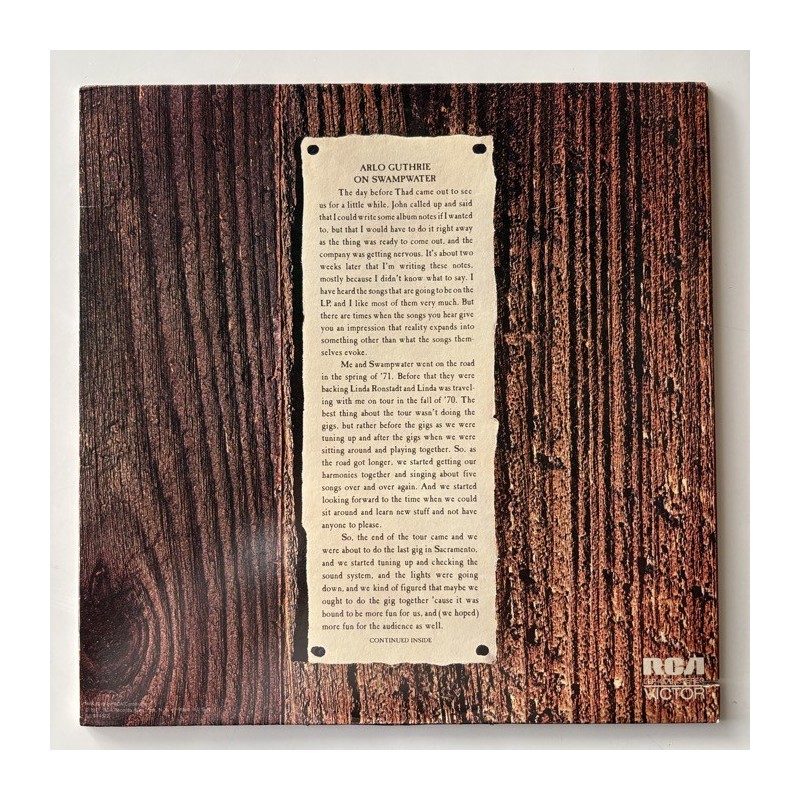 ARLO GUTHRIE
ON SWAMPWATER
The day before Thad came out to see
us for a little while, John called up and said
that I could write some album notes if I wanted
to, but that I would have to do it right away
as the thing was ready to come out, and the
company was getting nervous. It's about two
weeks later that I'm writing these notes,
mostly because I didn't know what to say. I
have heard the songs that are going to be on the
LP, and I like most of them very much. But
there are times when the songs you hear give
you an impression that reality expands into
something other than what the songs them-
selves evoke.
Me and Swampwater went on the road
in the spring of '71. Before that they were
backing Linda Ronstadt and Linda was travel-
ing with me on tour in the fall of '70. The
best thing about the tour wasn't doing the
gigs, but rather before the gigs as we were
tuning up and after the gigs when we were
sitting around and playing together. So, as
the road got longer, we started getting our
harmonies together and singing about five
songs over and over again. And we started
looking forward to the time when we could
sit around and learn new stuff and not have
anyone to please.
So, the end of the tour came and we
were about to do the last gig in Sacramento,
and we started tuning up and checking the
sound system, and the lights were going
down, and we kind of figured that maybe we
ought to do the gig together 'cause it was
bound to be more fun for us, and (we hoped)
more fun for the audience as well.
CONTINUED INSIDE
RCA
VICTOR